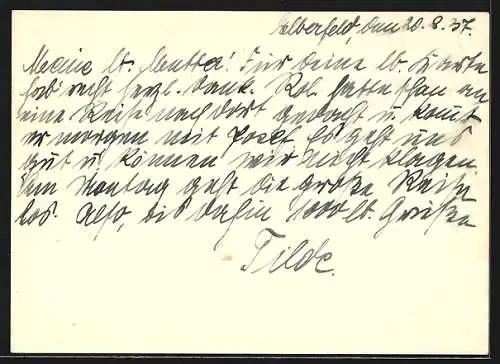 Elberfeld, den 20.8.37.
Meine lb. Mutter! Für Deine lb. Karte
hab recht herzl. Dank. Rol. hatte schon an
eine Reise nach dort gedacht u. kommt
er morgen mit Josef. Es geht uns
gut u. können wir nicht klagen.
Am Montag geht die große Reise
los. Also, bis dahin 1000 lb. Grüße
Tilde.